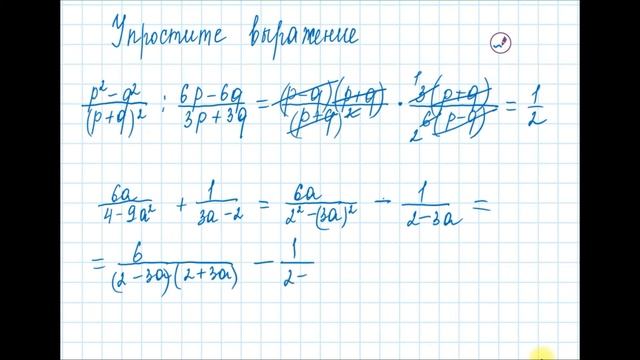 Упростите выражение
(p² - q²)/(p+q)² : (6p-6q)/(3p+3q) = (p-q)(p+q)/(p+q)² · 3(p+q)/6(p-q) = 1/2
6a/(4-9a²) + 1/(3a-2) = 6a/(2²-(3a)²) - 1/(2-3a) =
= 6/((2-3a)(2+3a)) - 1/(2-